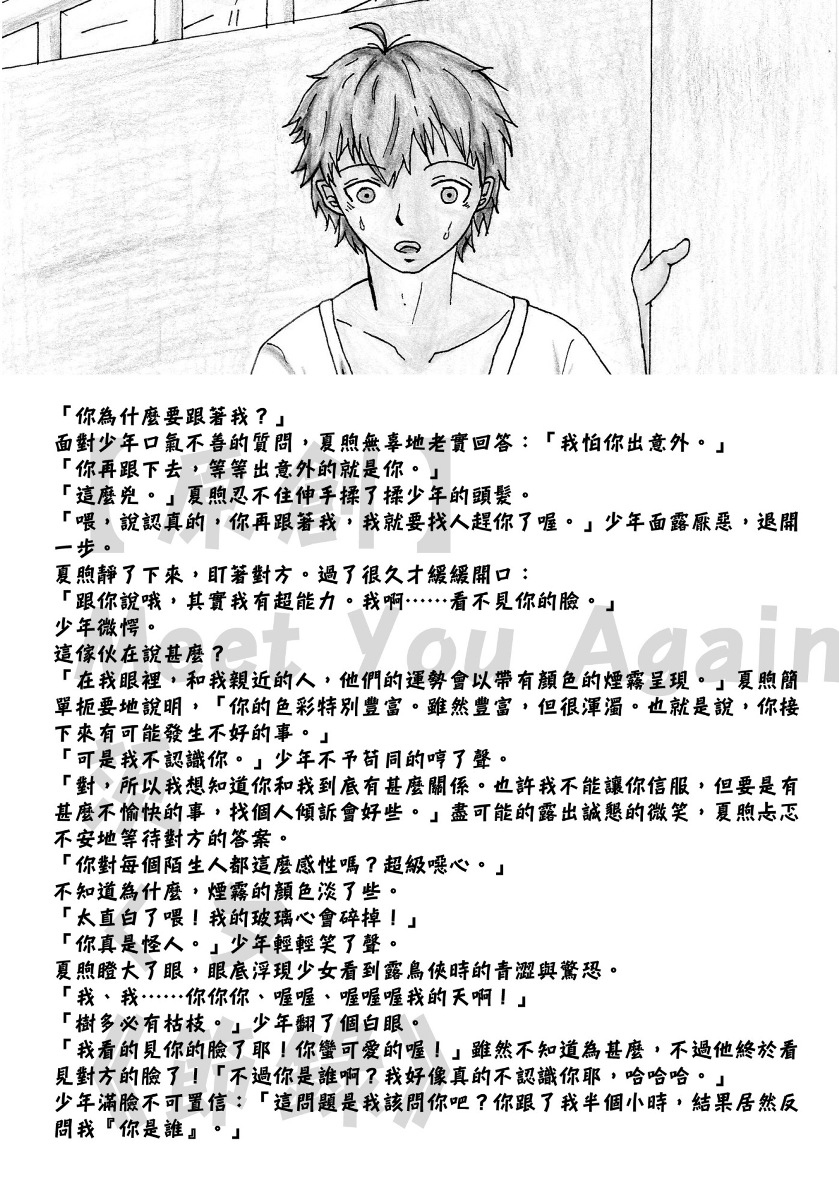 「你為什麼要跟著我？」
面對少年口氣不善的質問，夏煦無辜地老實回答：「我怕你出意外。」
「你再跟下去，等等出意外的就是你。」
「這麼兇。」夏煦忍不住伸手揉了揉少年的頭髮。
「喂，說認真的，你再跟著我，我就要找人趕你了喔。」少年面露厭惡，退開
一步。
夏煦靜了下來，盯著對方。過了很久才緩緩開口：
「跟你說哦，其實我有超能力。我啊……看不見你的臉。」
少年微愕。
這傢伙在說甚麼？
「在我眼裡，和我親近的人，他們的運勢會以帶有顏色的煙霧呈現。」夏煦簡
單扼要地說明，「你的色彩特別豐富。雖然豐富，但很渾濁。也就是說，你接
下來有可能發生不好的事。」
「可是我不認識你。」少年不予苟同的哼了聲。
「對，所以我想知道你和我到底有甚麼關係。也許我不能讓你信服，但要是有
甚麼不愉快的事，找個人傾訴會好些。」盡可能的露出誠懇的微笑，夏煦忐忑
不安地等待對方的答案。
「你對每個陌生人都這麼感性嗎？超級噁心。」
不知道為什麼，煙霧的顏色淡了些。
「太直白了喂！我的玻璃心會碎掉！」
「你真是怪人。」少年輕輕笑了聲。
夏煦瞪大了眼，眼底浮現少女看到露鳥俠時的青澀與驚恐。
「我、我……你你你、喔喔、喔喔喔我的天啊！」
「樹多必有枯枝。」少年翻了個白眼。
「我看的見你的臉了耶！你蠻可愛的喔！」雖然不知道為甚麼，不過他終於看
見對方的臉了！「不過你是誰啊？我好像真的不認識你耶，哈哈哈。」
少年滿臉不可置信：「這問題是我該問你吧？你跟了我半個小時，結果居然反
問我『你是誰』。」
【原創】
Meet You Again